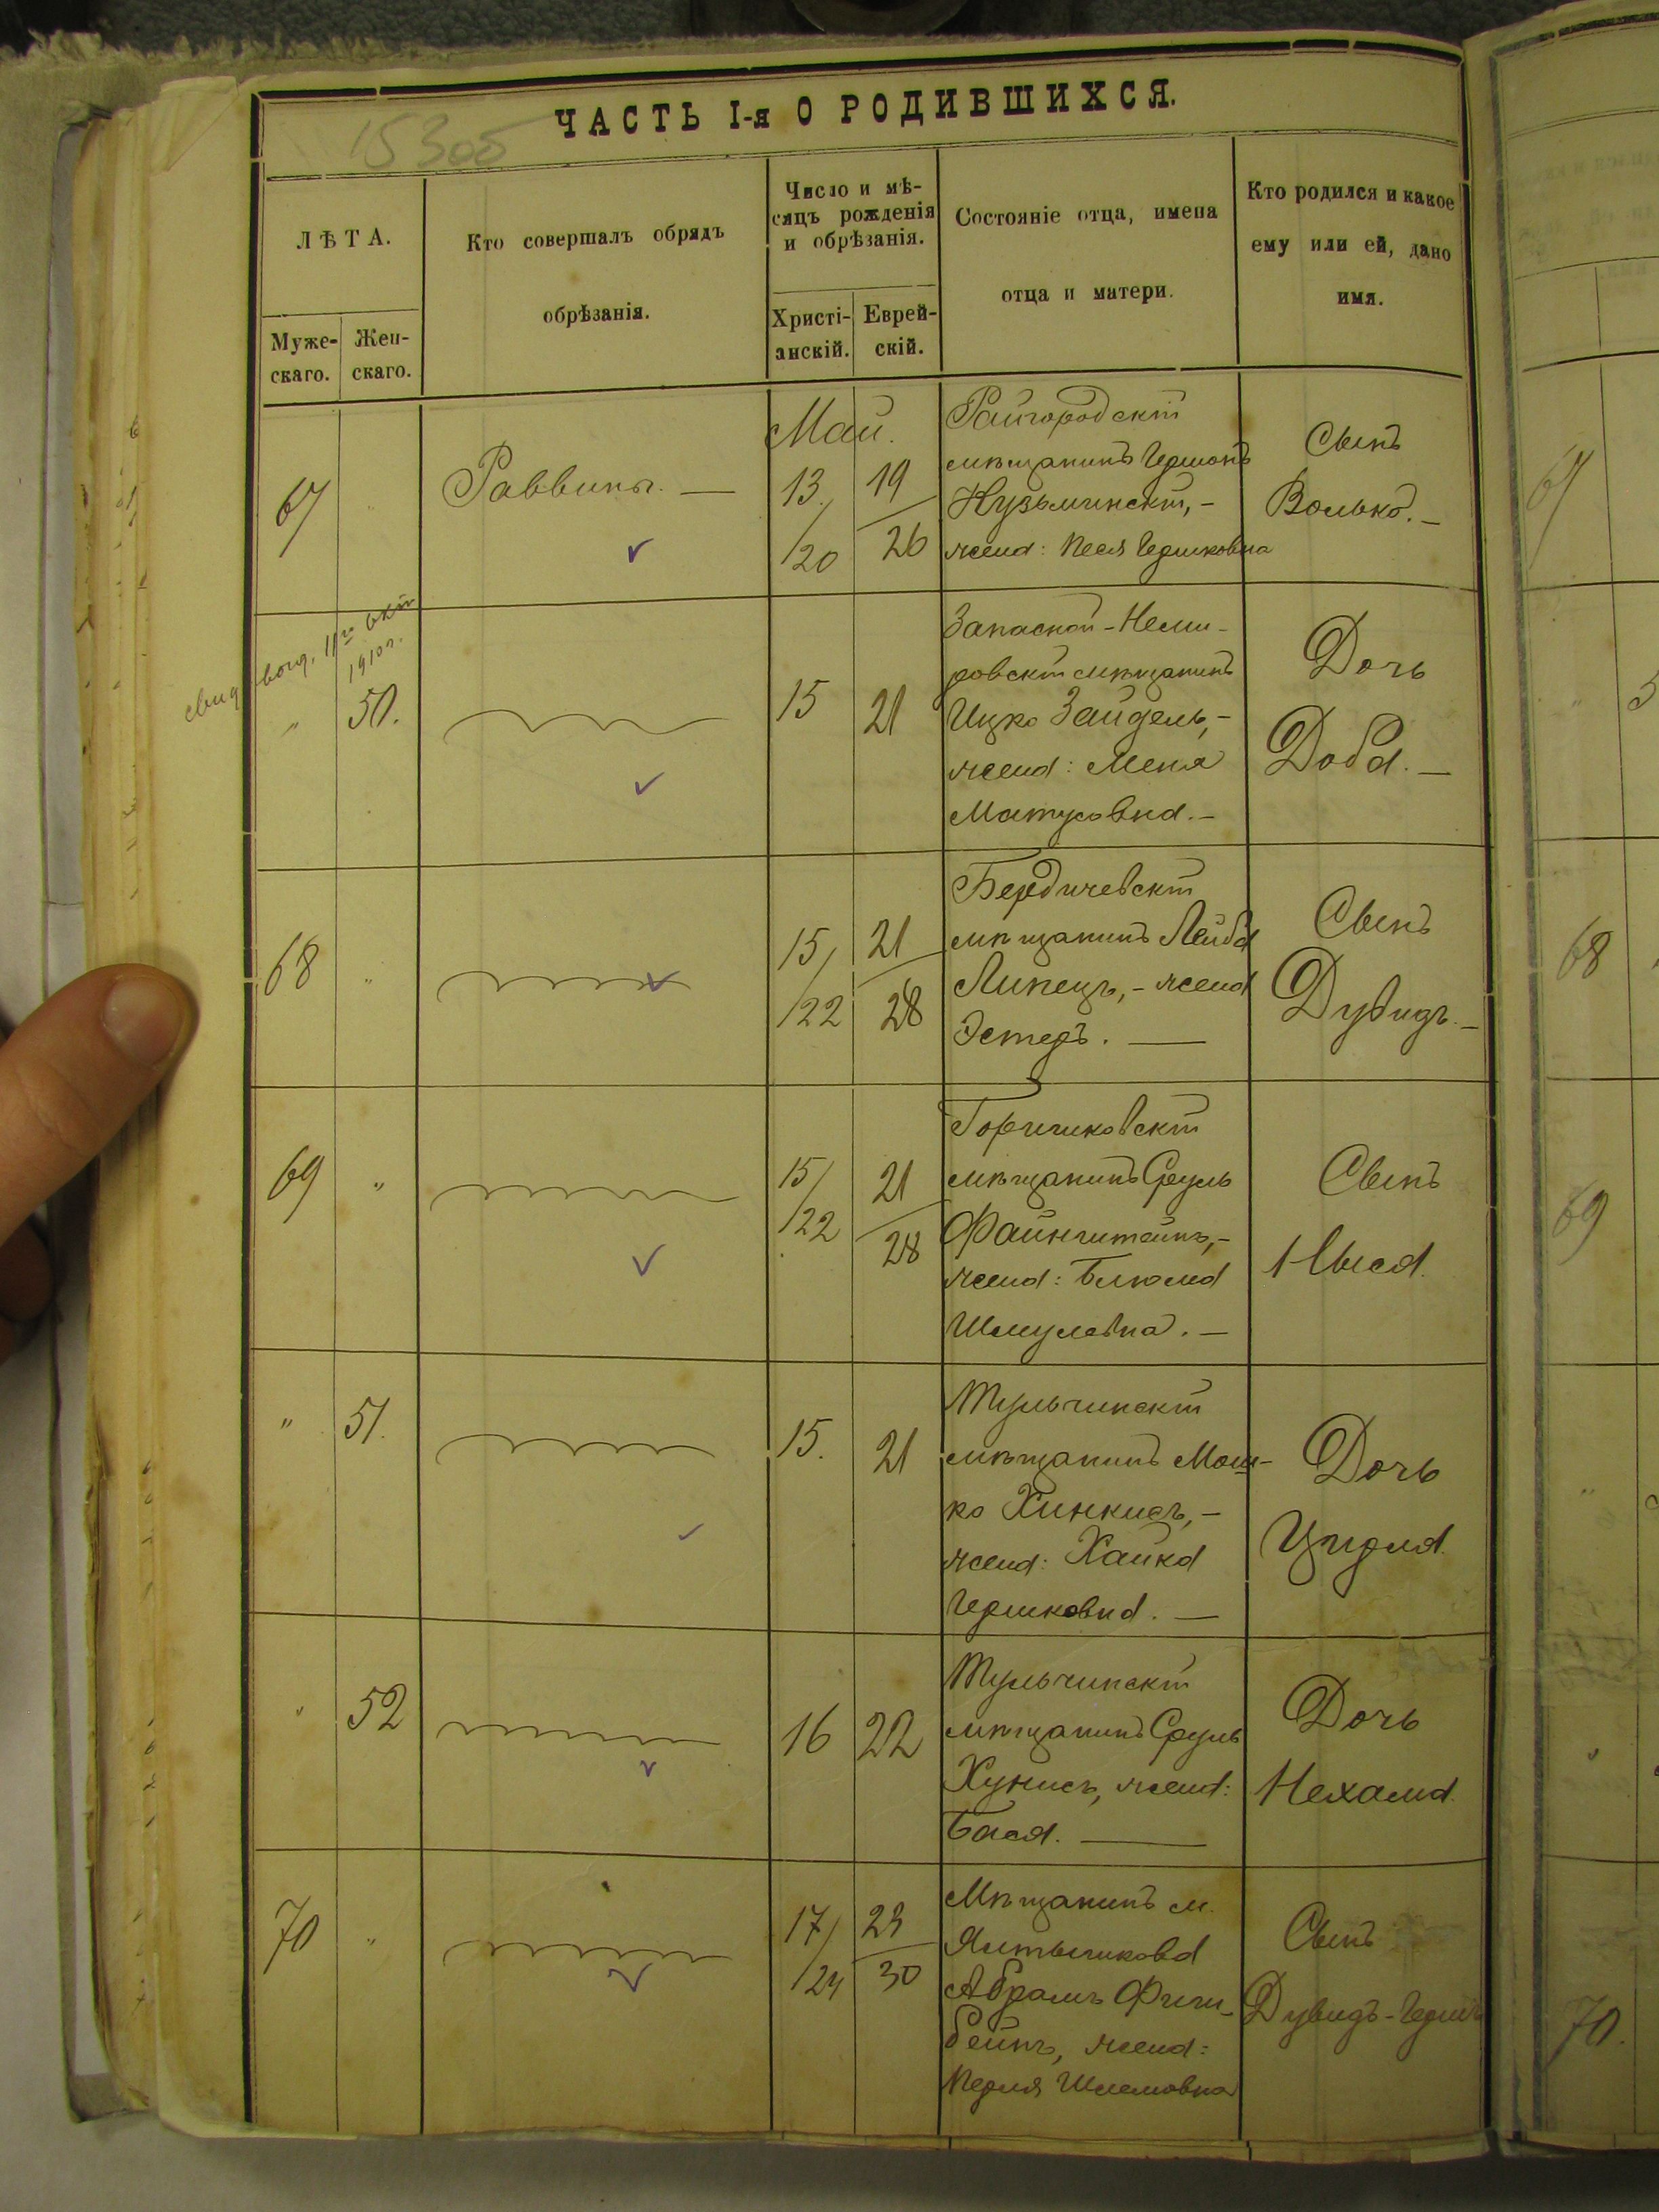 153об
ЧАСТЬ I-я О РОДИВШИХСЯ.
ЛѢТА.
Муже-
скаго.
Жен-
скаго.
Кто совершалъ обрядъ
обрѣзанія.
Число и мѣ-
сяцъ рожденія
и обрѣзанія.
Христі-
анскій.
Еврей-
скій.
Состояніе отца, имена
отца и матери.
Кто родился и какое
ему или ей, дано
имя.
67
"
Раввинъ. —
Май.
13/20
19/26
Райгородскій
мѣщанинъ Гершонъ
Кузьминскій, -
жена: Песя Гершковна
Сынъ
Волько. —
11го окт
1910 г.
"
50.
15
21
Запасной - Неми-
ровскій мѣщанинъ
Ицко Зайдель, -
жена: Меня
Матусовна. —
Дочь
Доба. —
68
"
15/22
21/28
Бердичевскій
мѣщанинъ Лейба
Липецъ, - жена
Эстеръ. —
Сынъ
Дувидъ. —
69
"
15/22
21/28
мѣщанинъ Сруль
Файнштейнъ, -
жена: Блюма
Шмулевна. —
Сынъ
Ныся.
"
51.
15.
21
Тульчинскій
мѣщанинъ Мош-
ко Хинкисъ, -
жена: Хайка
Гершковна. —
Дочь
Цирля.
"
52
16
22
Тульчинскій
мѣщанинъ Сруль
Хунисъ, жена:
Бася. —
Дочь
Нехама.
70
"
17/24
23/30
Мѣщанинъ м.
Ялтышкова
Абрамъ Фиш-
бейнъ, жена:
Перля Шлемовна
Сынъ
Дувидъ-Гершъ
67
"
5
68
69
"
"
70.